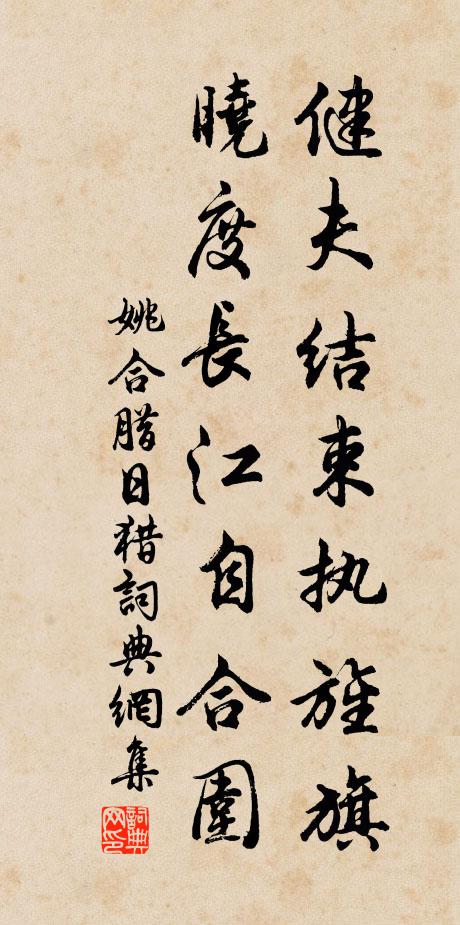 健夫结束执旌旗
曉度長江自合圍
姚合腊日猎詞典網集
詞典网印